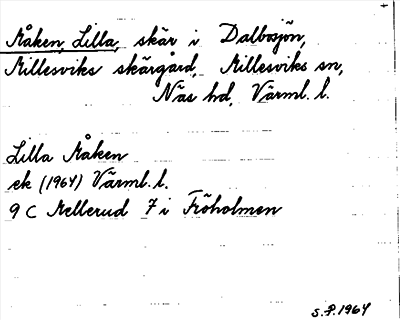 Måken, Lilla, skär i Dalbosjön,
Millesviks skärgård, Millesviks sn,
Näs hd, Värml. l.
Lilla Måken
ek (1964) Värml. l.
9 C Mellerud 7 i Fröholmen
S.P. 1964